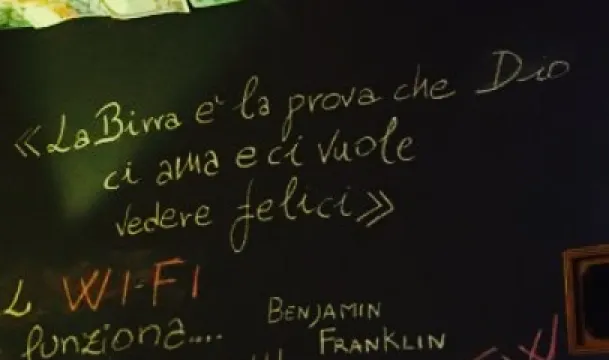 «La Birra e' la prova che Dio
ci ama e ci vuole
vedere felici»
WI-FI
funziona....
BENJAMIN
FRANKLIN